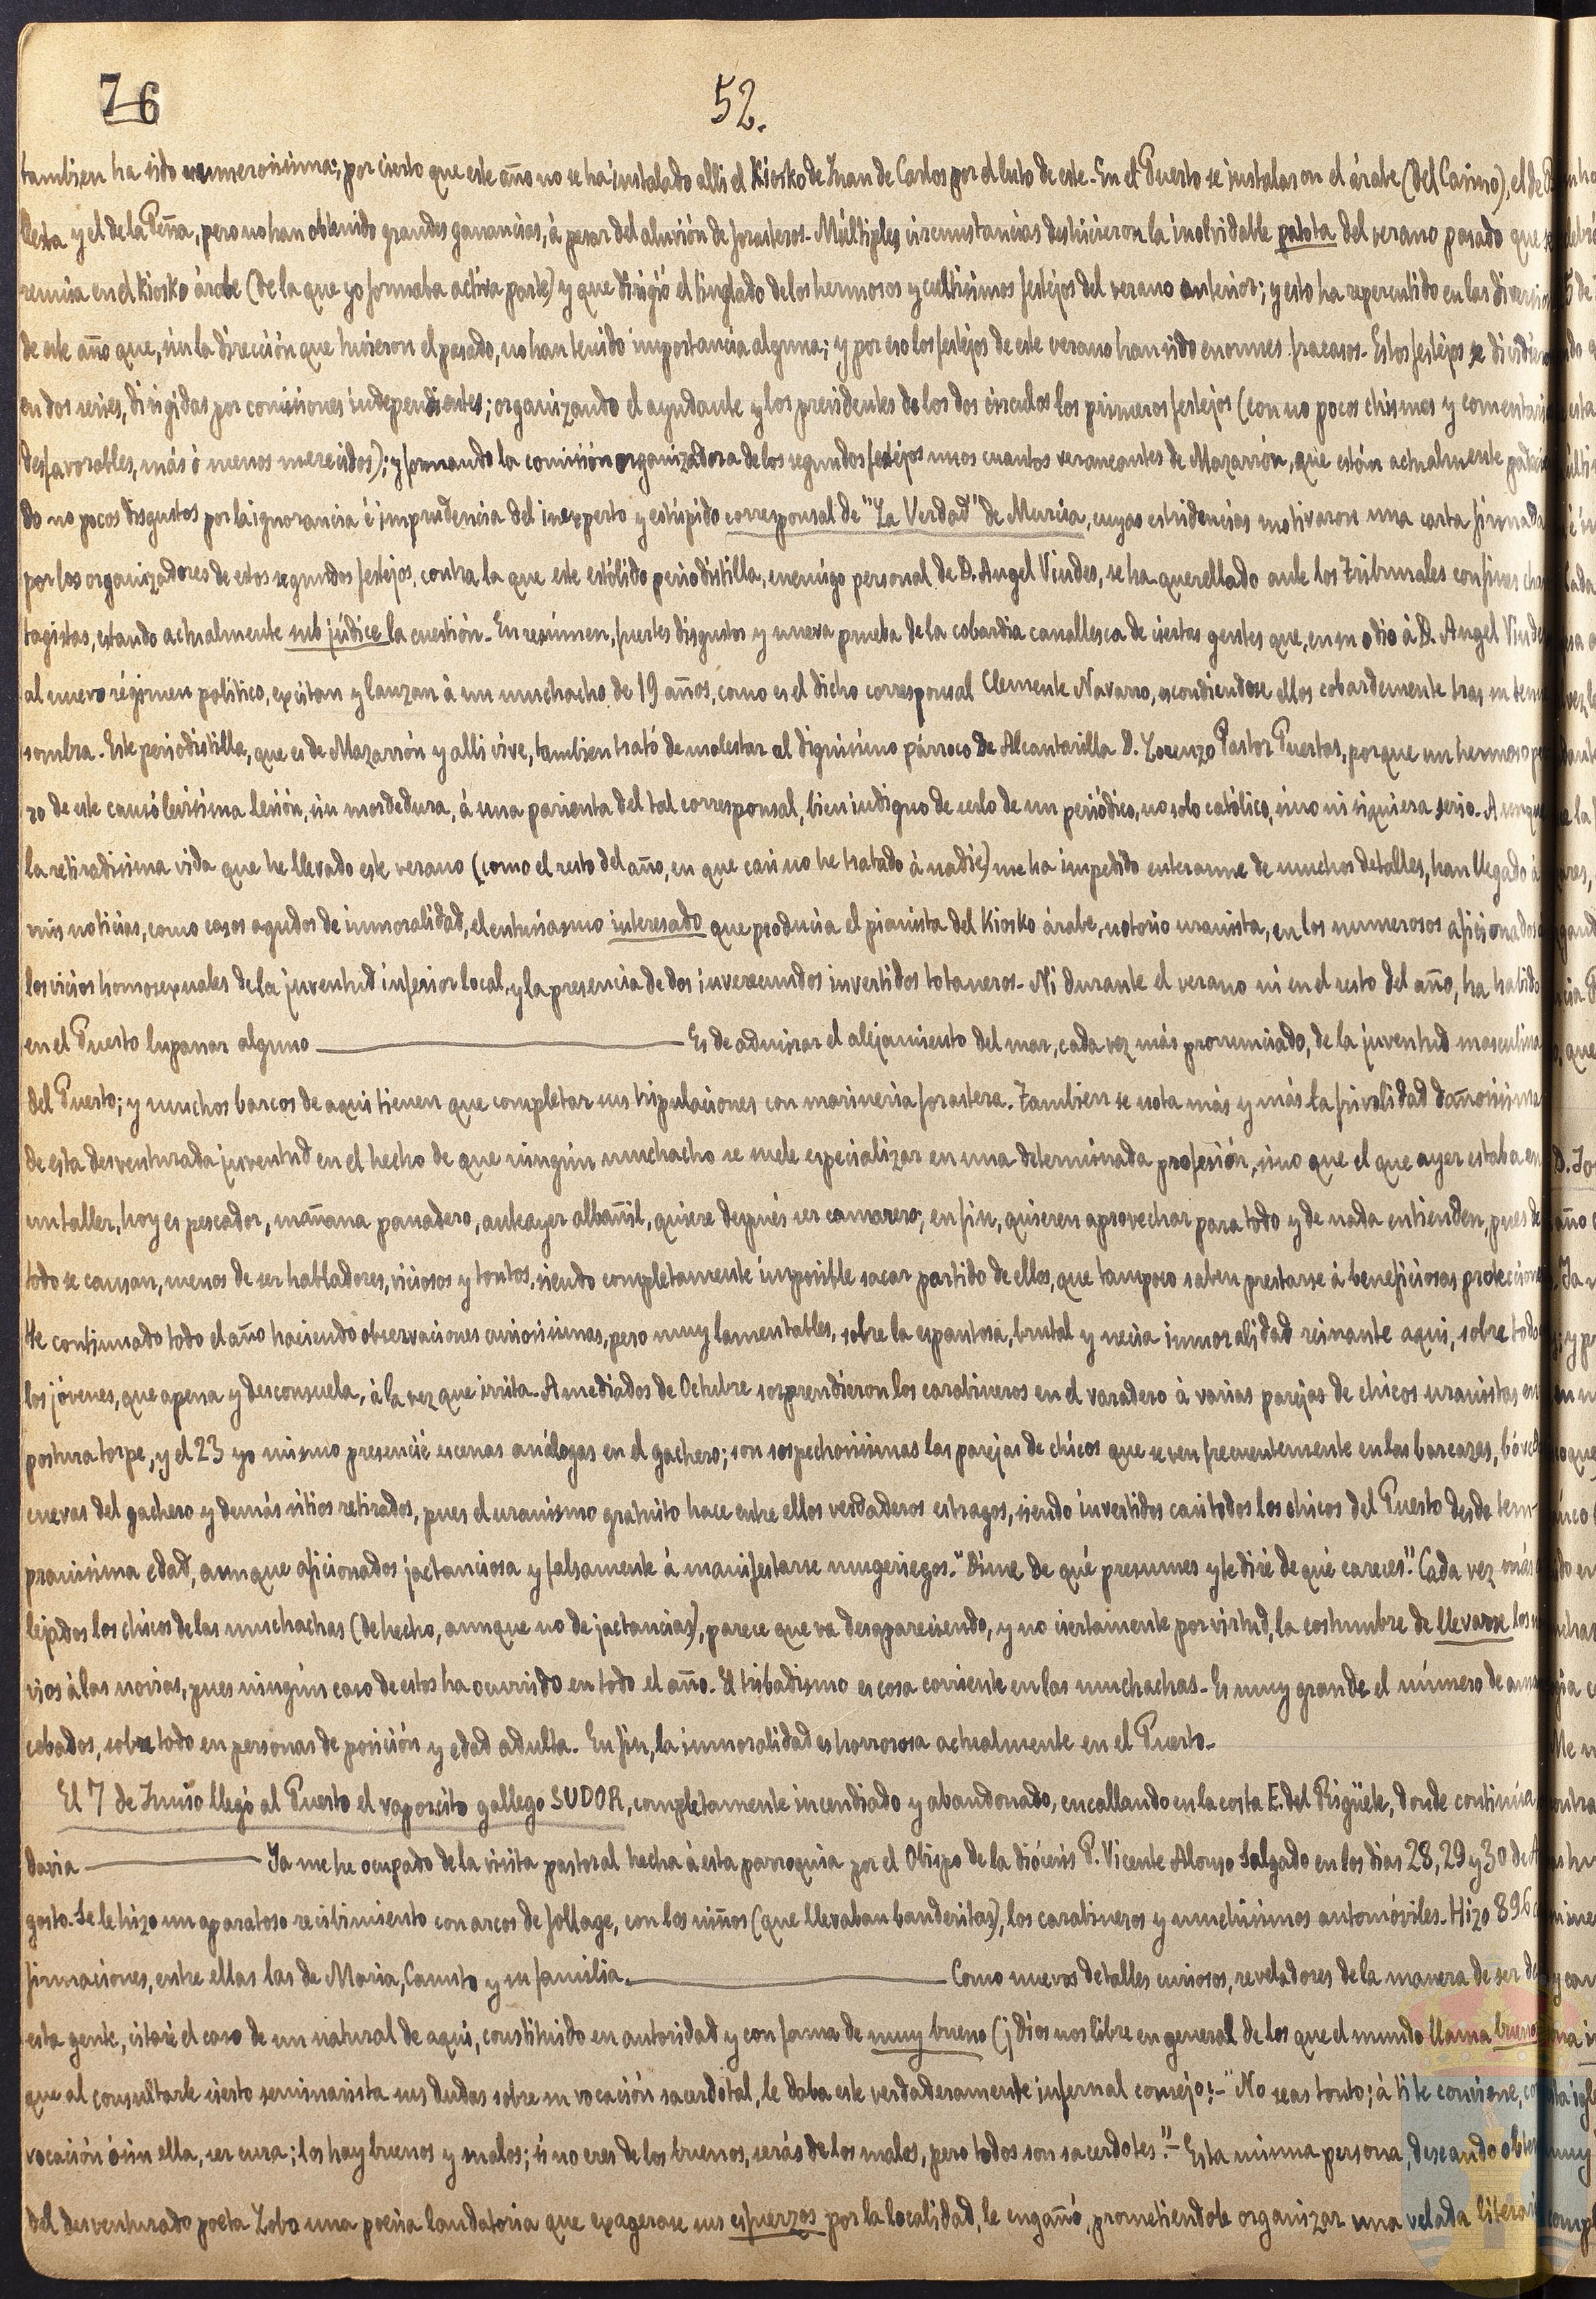 76
52.
tambien ha sido numerosisima; por cierto que este año no se ha instalado alli el Kiosko de Juan de Carlos por el luto de este. En el Puerto se instalaron el árabe (del Casino), el de
llesta y el de la Peña, pero no han obtenido grandes ganancias, á pesar del aluvión de forasteros. Múltiples circunstancias deshicieron la inolvidable patota del verano pasado que se
reunia en el Kiosko árabe (de la que yo formaba activa parte) y que dirigió el tinglado de los hermosos y cultisimos festejos del verano anterior; y esto ha repercutido en las diversio
de este año que, sin la dirección que tuvieron el pasado, no han tenido importancia alguna; y por eso los festejos de este verano han sido enormes fracasos. Estos festejos se dividie
en dos series, dirigidas por comisiones independientes; organizando el ayudante y los presidentes de los dos circulos los primeros festejos (con no pocos chismes y comentari
desfavorables, más ó menos merecidos); y formando la comisión organizadora de los segundos festejos unos cuantos veraneantes de Mazarrón, que están actualmente padecie
do no pocos disgustos por la ignorancia é imprudencia del inexperto y estúpido corresponsal de "La Verdad" de Murcia, cuyas estridencias motivaron una carta firmada
por los organizadores de estos segundos festejos, contra la que este estólido periodistilla, enemigo personal de D. Angel Viudes, se ha querellado ante los Tribunales con fines chan
tagistas, estando actualmente sub júdice la cuestión. En resúmen, fuertes disgustos y nueva prueba de la cobardia canallesca de ciertas gentes que, en su odio á D. Angel Viudes
al nuevo régimen político, excitan y lanzan á un muchacho de 19 años, como es el dicho corresponsal Clemente Navarro, escondiendose ellos cobardemente tras su tenue
sombra. Este periodistilla, que es de Mazarrón y alli vive, tambien trató de molestar al dignisimo párroco de Alcantarilla D. Lorenzo Pastor Puertas, porque un hermoso pe
ro de este causó levisima lesión, sin mordedura, á una parienta del tal corresponsal, bien indigno de serlo de un periódico, no solo católico, sino ni siquiera serio. Aunque
la retiradisima vida que he llevado este verano (como el resto del año, en que casi no he tratado á nadie) me ha impedido enterarme de muchos detalles, han llegado á
mis noticias, como casos agudos de inmoralidad, el entusiasmo interesado que producia el pianista del Kiosko árabe, notorio uranista, en los numerosos aficionados á
los vicios homosexuales de la juventud inferior local, y la presencia de dos inverecundos invertidos totaneros. Ni durante el verano ni en el resto del año, ha habido
en el Puerto lupanar alguno ——— Es de admirar el alejamiento del mar, cada vez más pronunciado, de la juventud masculina
del Puerto; y muchos barcos de aqui tienen que completar sus tripulaciones con marineria forastera. Tambien se nota más y más la frivolidad dañosisima
de esta desventurada juventud en el hecho de que ningún muchacho se suele especializar en una determinada profesión, sino que el que ayer estaba en
un taller, hoy es pescador, mañana panadero, anteayer albañil, quiere después ser camarero; en fin, quieren aprovechar para todo y de nada entienden, pues de
todo se cansan, menos de ser habladores, viciosos y tontos, siendo completamente imposible sacar partido de ellos, que tampoco saben prestarse á beneficiosas proteccione
He continuado todo el año haciendo observaciones curiosisimas, pero muy lamentables, sobre la espantosa, brutal y necia inmoralidad reinante aqui, sobre todo
los jóvenes, que apena y desconsuela, á la vez que irrita. A mediados de Octubre sorprendieron los carabineros en el varadero á varias parejas de chicos uranistas en
postura torpe, y el 23 yo mismo presencié escenas análogas en el gachero; son sospechosisimas las parejas de chicos que se ven frecuentemente en las barcazas, bóved
cuevas del gachero y demás sitios retirados, pues el uranismo gratuito hace entre ellos verdaderos estragos, siendo invertidos casi todos los chicos del Puerto desde tem-
pranisima edad, aunque aficionados jactanciosa y falsamente á manifestarse mugeriegos. "Dime de qué presumes y te diré de qué careces". Cada vez más
lejados los chicos de las muchachas (de hecho, aunque no de jactancias), parece que va desapareciendo, y no ciertamente por virtud, la costumbre de llevarse los n
vios á las novias, pues ningún caso de estos ha ocurrido en todo el año. El tribadismo es cosa corriente en las muchachas. Es muy grande el número de aman
cebados, sobre todo en personas de posición y edad adulta. En fin, la inmoralidad es horrorosa actualmente en el Puerto.
El 7 de Junio llegó al Puerto el vaporcito gallego SUDOR, completamente incendiado y abandonado, encallando en la costa E. del Rigüete, donde continúa
davia ——— Ya me he ocupado de la visita pastoral hecha á esta parroquia por el Obispo de la diócesis P. Vicente Alonso Salgado en los dias 28, 29 y 30 de A
gosto. Se le hizo un aparatoso recibimiento con arcos de follage, con los niños (que llevaban banderitas), los carabineros y muchisimos automóviles. Hizo 896
firmaciones, entre ellas las de Maria, Canuto y su familia. ——— Como nuevos detalles curiosos, reveladores de la manera de ser de
esta gente, citaré el caso de un natural de aqui, constituido en autoridad y con fama de muy bueno (¡Dios nos libre en general de los que el mundo llama buenos
que al consultarle cierto seminarista sus dudas sobre su vocación sacerdotal, le daba este verdaderamente infernal consejo: – "No seas tonto; á ti te conviene, con
vocación ó sin ella, ser cura; los hay buenos y malos; si no eres de los buenos, serás de los malos, pero todos son sacerdotes". – Esta misma persona, deseando obten
del desventurado poeta Lobo una poesia laudatoria que exagerase sus esfuerzos por la localidad, le engañó, prometiendole organizar una velada literari